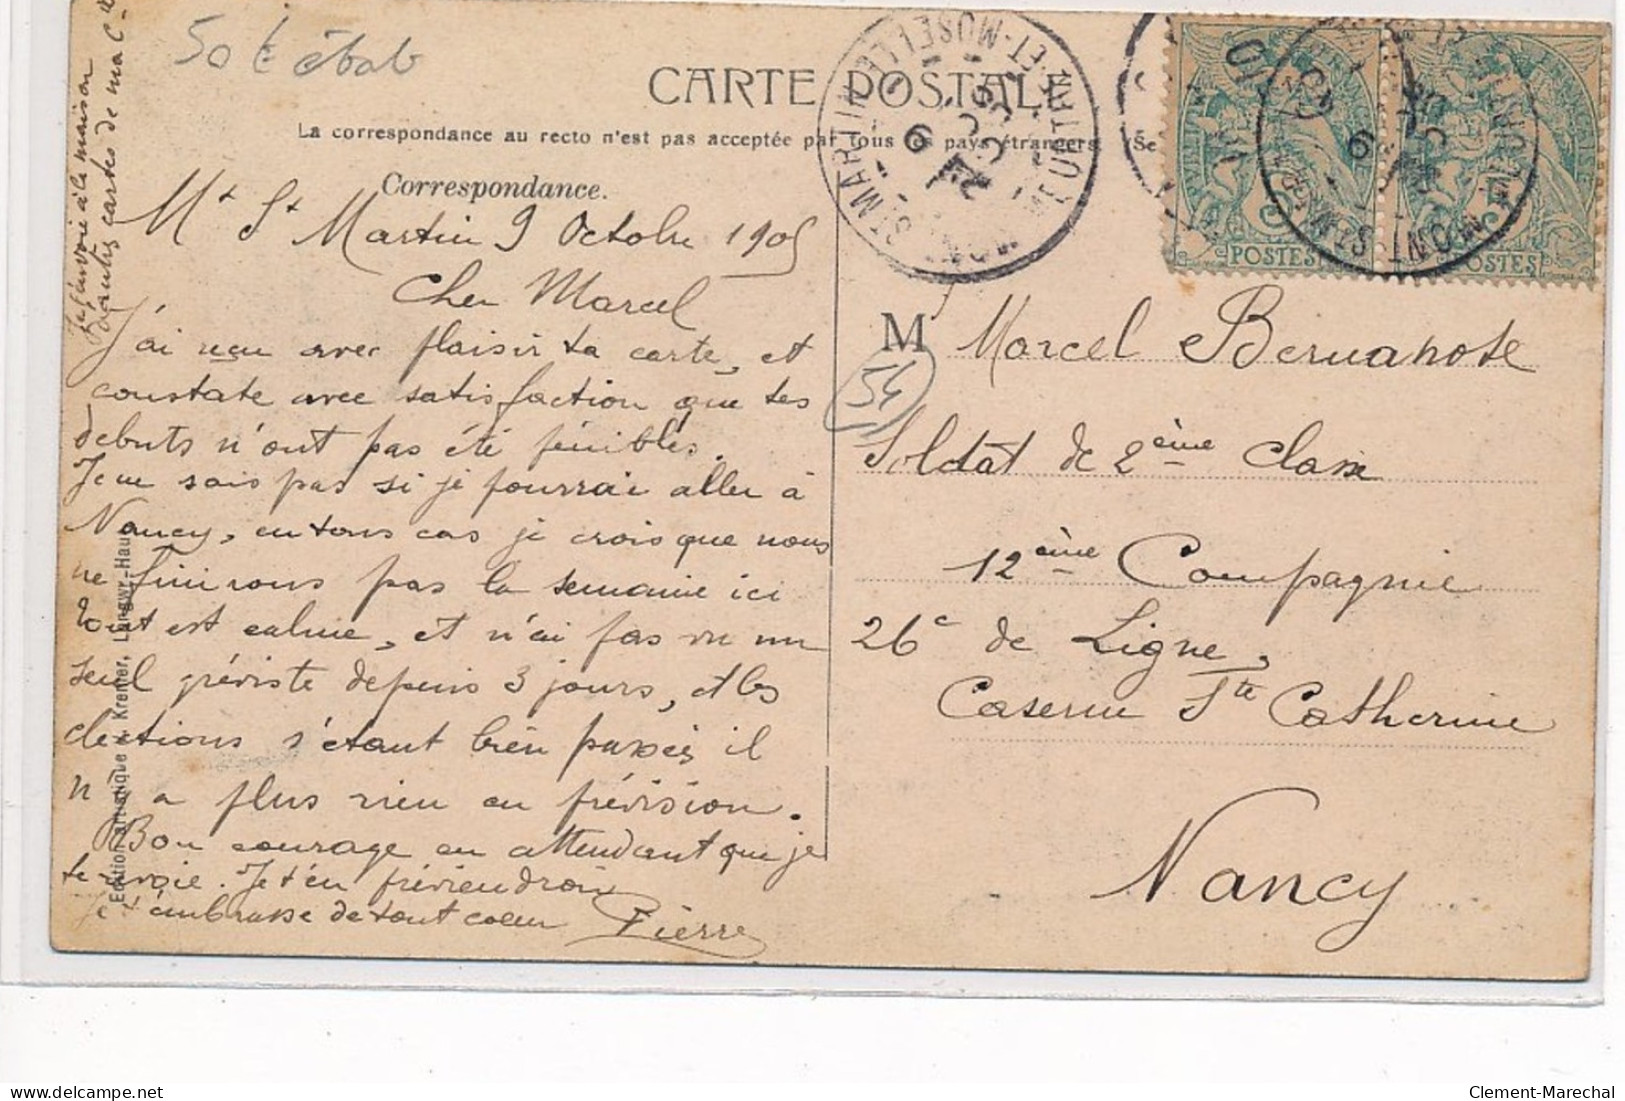 50 t état
CARTE POSTALE
La correspondance au recto n'est pas acceptée par tous les pays étrangers. (Se
Correspondance.
Mt St Martin 9 Octobre 1905
Cher Marcel
J'ai reçu avec plaisir ta carte, et
constate avec satisfaction que tes
debuts n'ont pas été pénibles.
Je ne sais pas si je pourrai aller à
Nancy, en tous cas je crois que nous
ne finirons pas la semaine ici
tout est calme, et n'ai pas vu un
seul gréviste depuis 3 jours, et les
élections s'étant bien passées il
n'y a plus rien en prévision.
Bon courage en attendant que je
te revoie. Je t'en préviendrai
Je t'embrasse de tout coeur Pierre
Je t'envoie à la maison
d'autres cartes de ma Cie
Edition artistique Kremer, Longwy-Haut
M Marcel
54
Soldat de 2ème classe
12ème Compagnie
26e de Ligne,
Caserne Ste Catherine
Nancy
MONT ST MARTIN
MEURTHE-ET-MOSELLE
9 OCT 05
POSTES
POSTES
MONT ST MARTIN
9 OCT 05
Clement-Marechal
www.delcampe.net